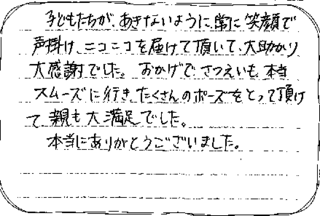 子どもたちが、あきないように常に笑顔で
声掛け、ニコニコを届けて頂いて、大助かり
大感謝でした。おかげで、さつえいも、本当
スムーズに行き、たくさんのポーズをとって頂け
て、親も大満足でした。
本当にありがとうございました。